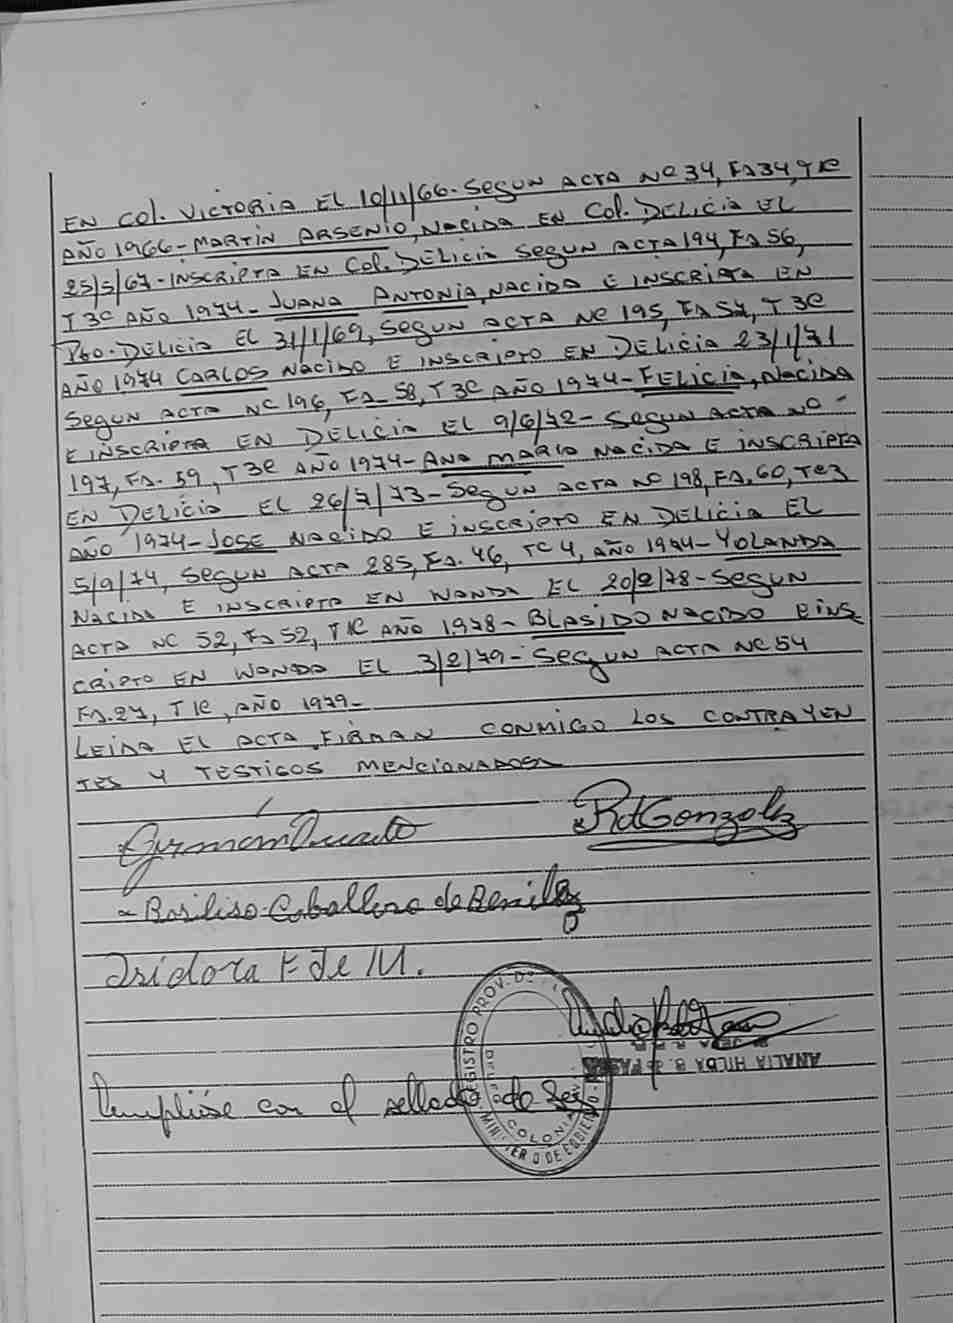 EN COL. VICTORIA EL 10/11/66- SEGUN ACTA Nº 34, Fº 34, T 1º
AÑO 1966- MARTIN ARSENIO, NACIDA EN COL. DELICIA EL
25/5/67- INSCRIPTA EN COL. DELICIA SEGUN ACTA 194, Fº 56,
T 3º AÑO 1974- JUANA ANTONIA, NACIDA E INSCRIPTA EN
PTO. DELICIA EL 31/1/69, SEGUN ACTA Nº 195, Fº 57, T 3º
AÑO 1974 CARLOS NACIDO E INSCRIPTO EN DELICIA 23/1/71
SEGUN ACTA Nº 196, Fº 58, T 3º AÑO 1974- FELICIA, NACIDA
E INSCRIPTA EN DELICIA EL 9/6/72- SEGUN ACTA Nº -
197, Fº. 59, T 3º AÑO 1974- ANA MARIA NACIDA E INSCRIPTA
EN DELICIA EL 26/7/73- SEGUN ACTA Nº 198, Fº. 60, Tº3
AÑO 1974- JOSE NACIDO E INSCRIPTO EN DELICIA EL
5/9/74, SEGUN ACTA 285, Fº. 46, Tº 4, AÑO 1974- YOLANDA
NACIDA E INSCRIPTA EN WANDA EL 20/2/78- SEGUN
ACTA Nº 52, Fº 52, T 1º AÑO 1978- BLASIDO NACIDO E INS
CRIPTO EN WANDA EL 3/2/79- SEGUN ACTA Nº 54
Fº. 27, T 1º, AÑO 1979-
LEIDA EL ACTA, FIRMAN CONMIGO LOS CONTRAYEN
TES Y TESTIGOS MENCIONADOS
Germán Duarte
RdGonzalz
Basilisa Caballero de Benitez
Isidora F de M.
REGISTRO PROV. DE
COLONIA
MINISTERIO DE GOBIERNO
ANALIA HILDA B. de
Cumplióse con el sellado de Ley